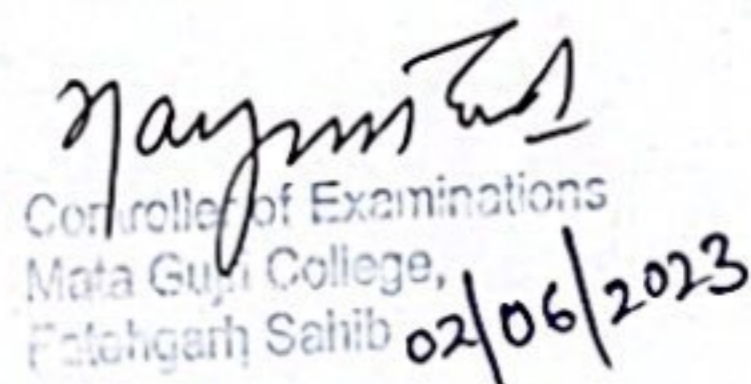 Controller of Examinations
Mata Gujri College,
Fatehgarh Sahib 02/06/2023